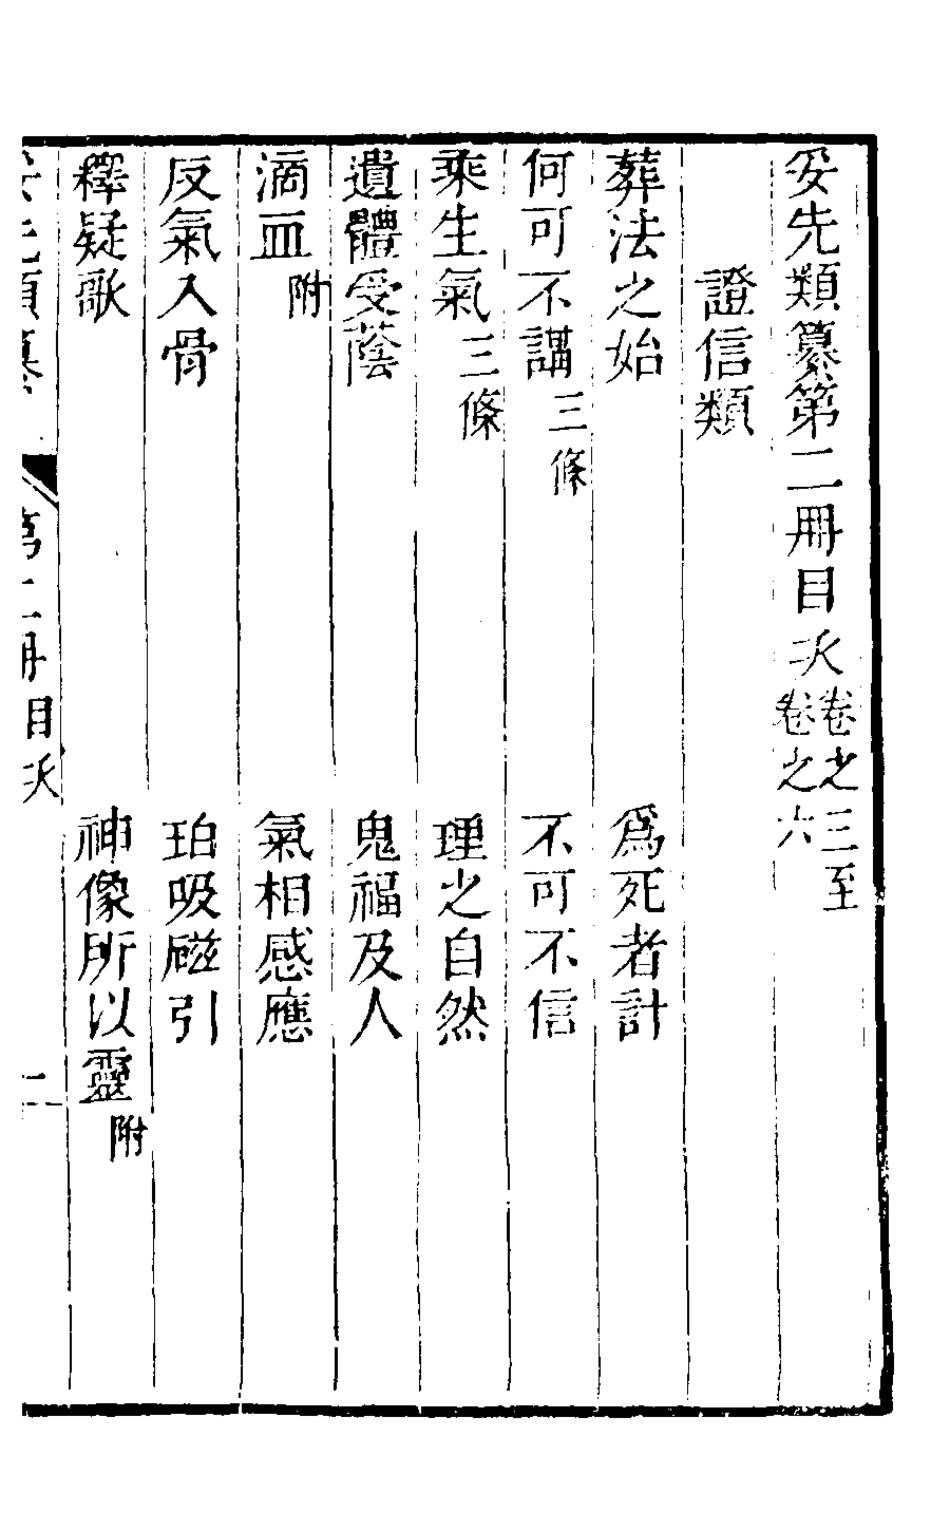 妥先類纂第二冊目次卷之三至卷之六
證信類
葬法之始 爲死者計
何可不講三條 不可不信
乘生氣三條 理之自然
遺體受蔭 鬼福及人
滴血附 氣相感應
反氣入骨 珀吸磁引
釋疑歌 神像所以靈附
妥先類纂 第二冊目次 一